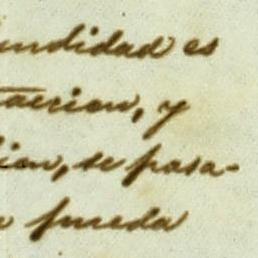 undidad es
tacion, y
cion, se pasa-
pueda